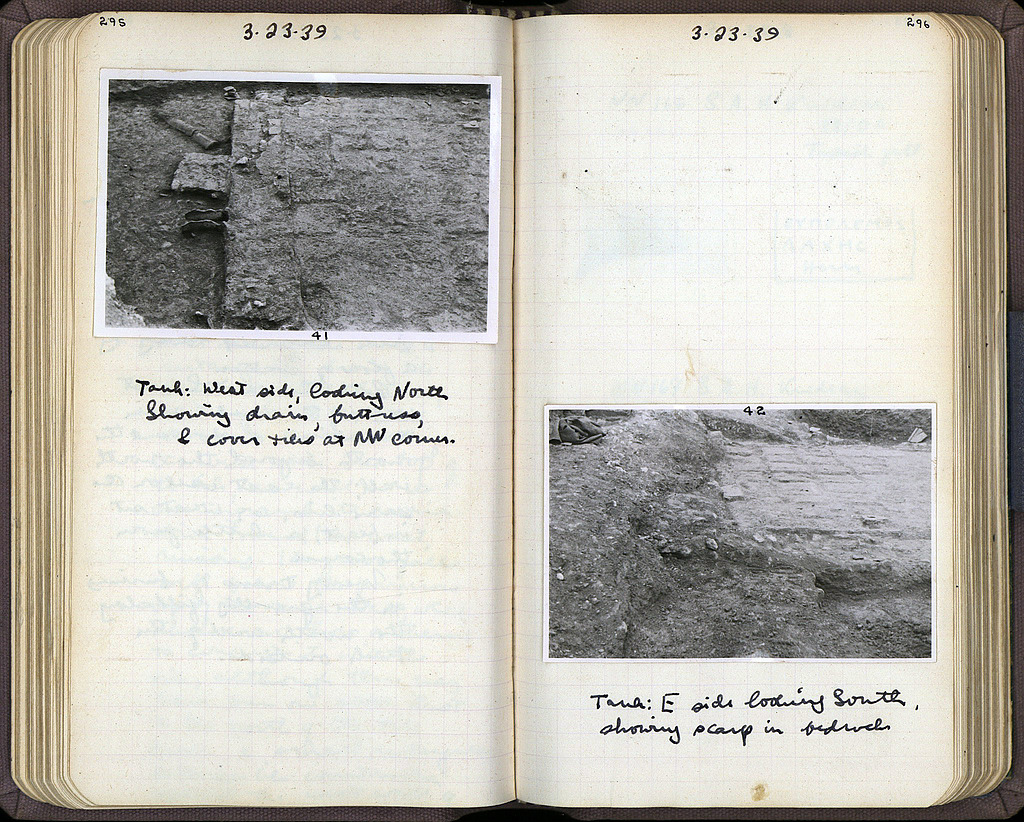 295
3·23·39
41
Tank: West side, looking North
Showing drain, buttress,
& cover tiles at NW corner.
296
3·23·39
42
Tank: E side looking South,
showing scarp in bedrock